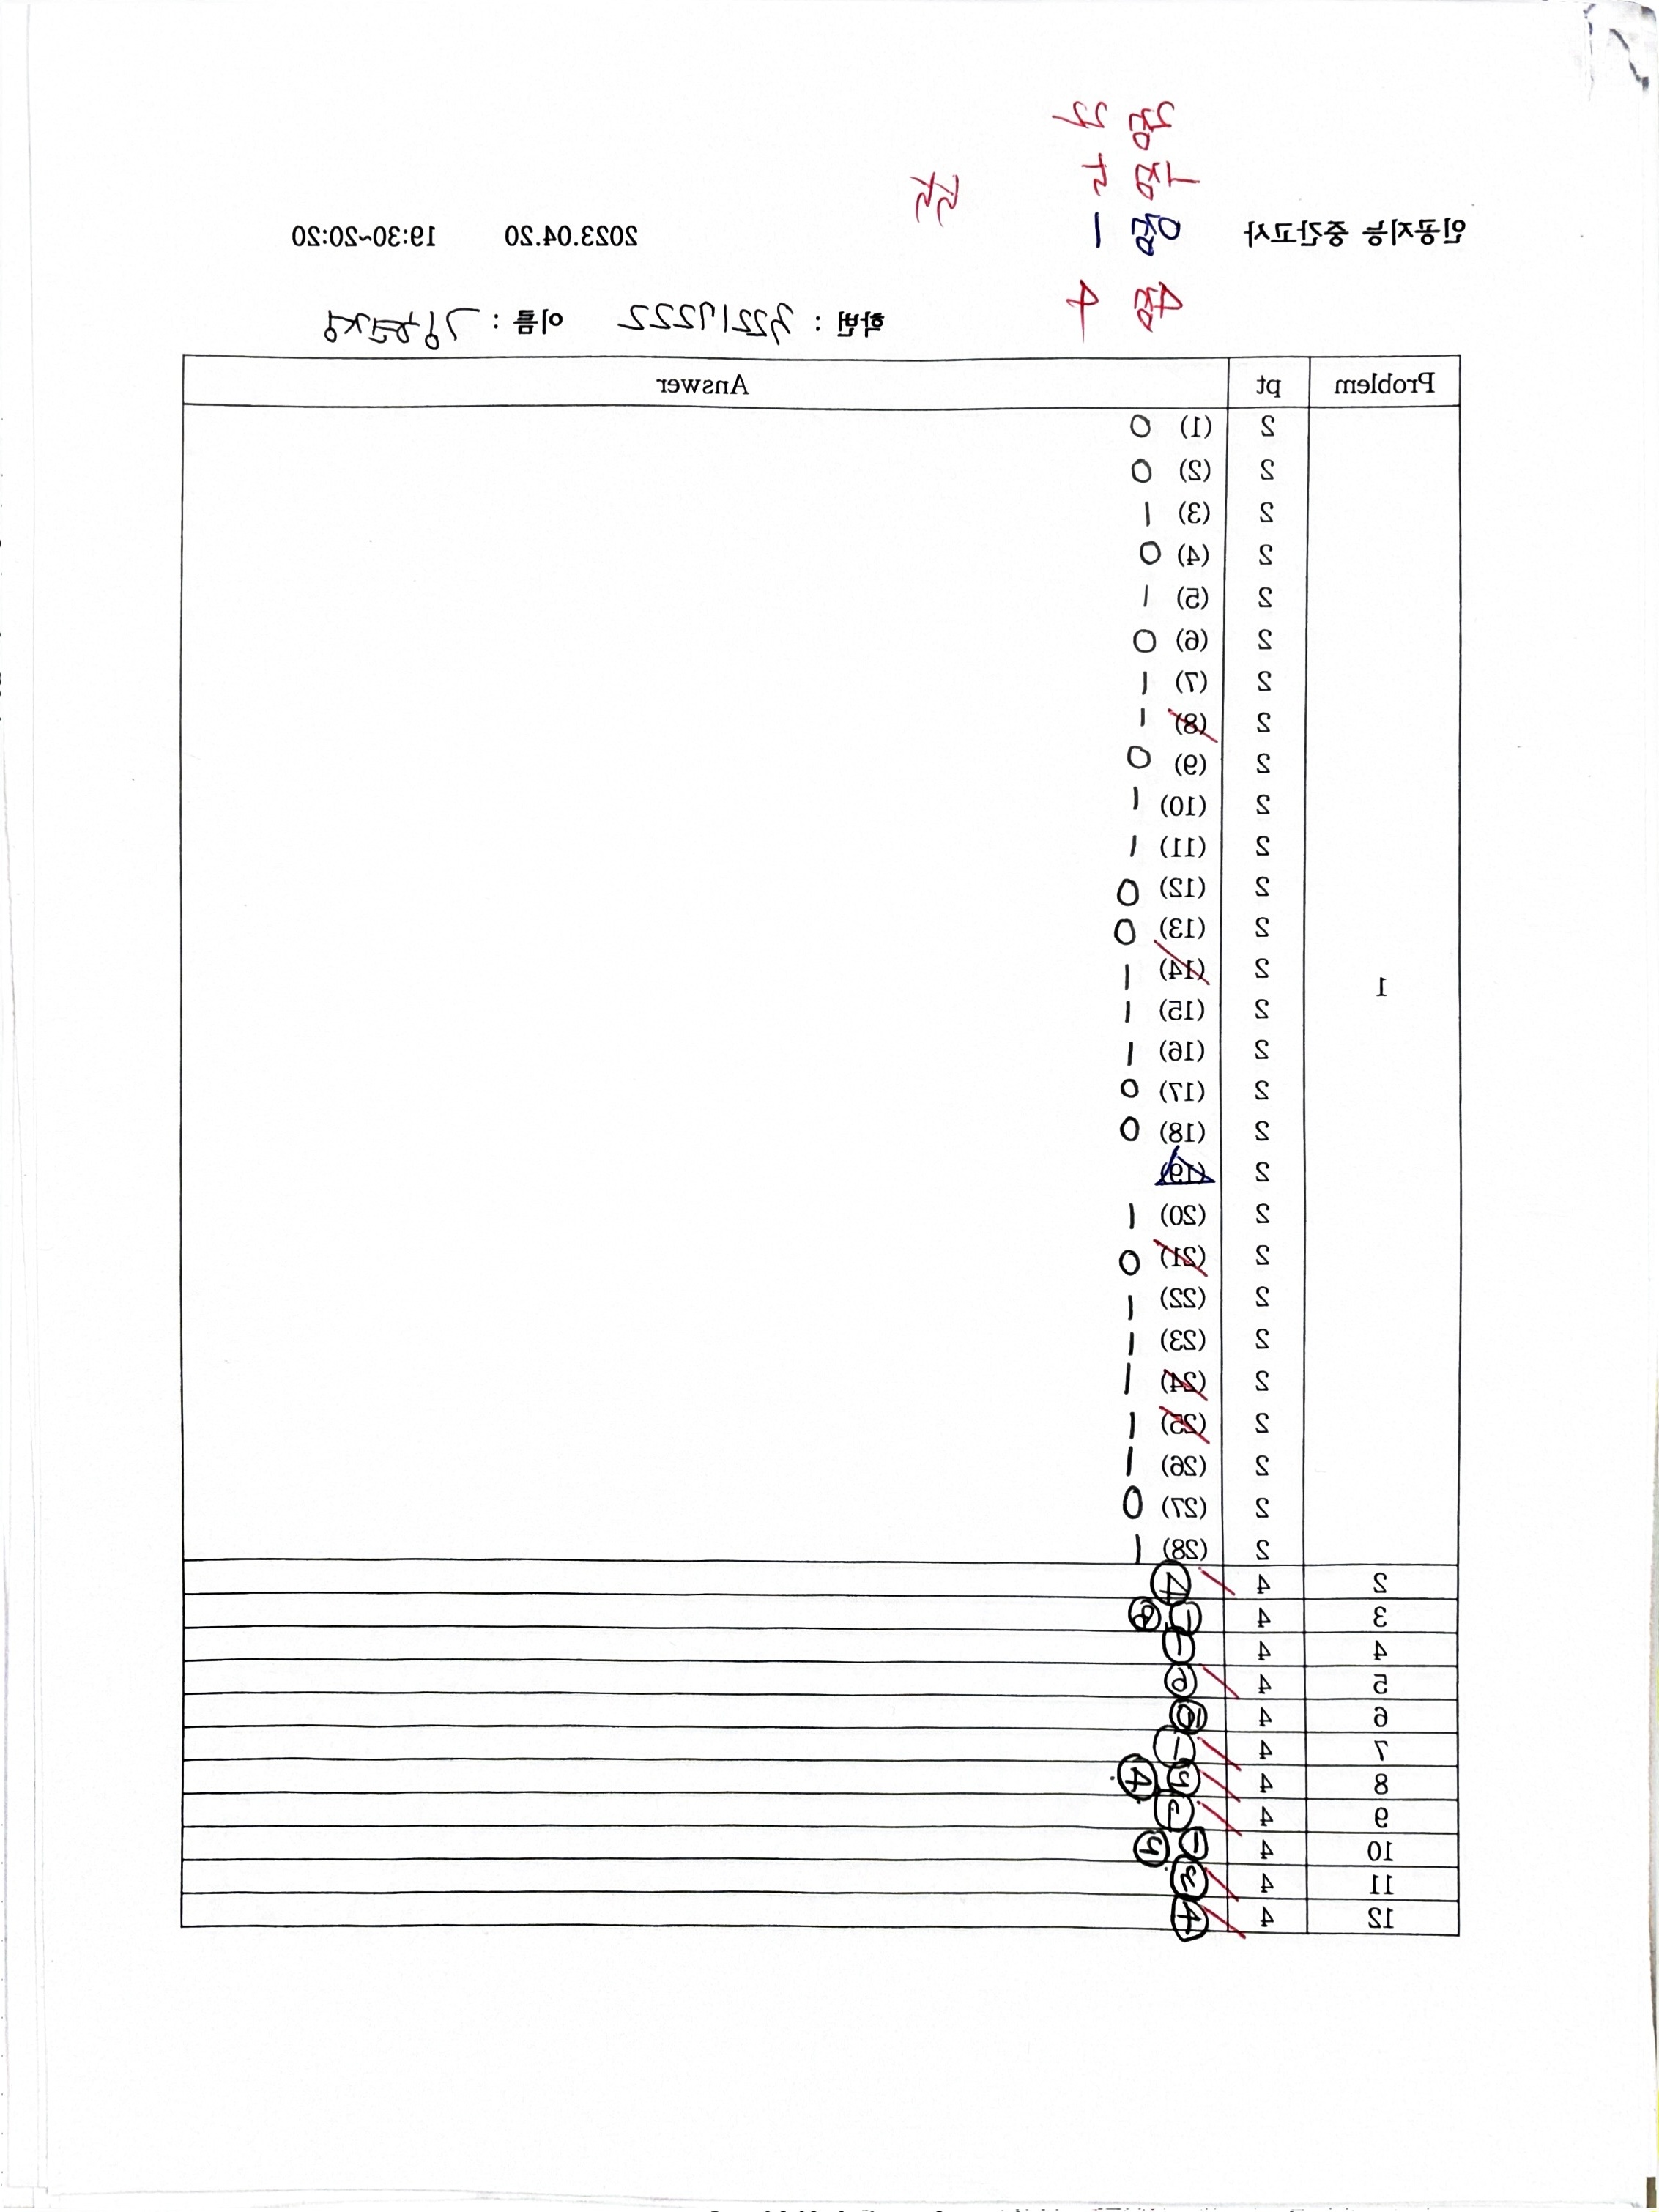 2점
1점
0점 1
4점 4
인공지능 중간고사 2023.04.20 19:30~20:20
학번 : 32217222 이름 :
Problem pt Answer
2 (1) 0
2 (2) 0
2 (3) 1
2 (4) 0
2 (5) 1
2 (6) 0
2 (7) 1
2 (8) 1
2 (9) 0
2 (10) 1
2 (11) 1
2 (12) 0
2 (13) 0
2 (14) 1
1
2 (15) 1
2 (16) 1
2 (17) 0
2 (18) 0
2 (19)
2 (20) 1
2 (21) 0
2 (22) 1
2 (23) 1
2 (24) 1
2 (25) 1
2 (26) 1
2 (27) 0
2 (28) 1
2 4 ④
3 4 ①
4 4 ①
5 4 ⑥
6 4 ⑩
7 4 ①
8 4 ④
9 4
10 4 ①
11 4 ③
12 4 ④